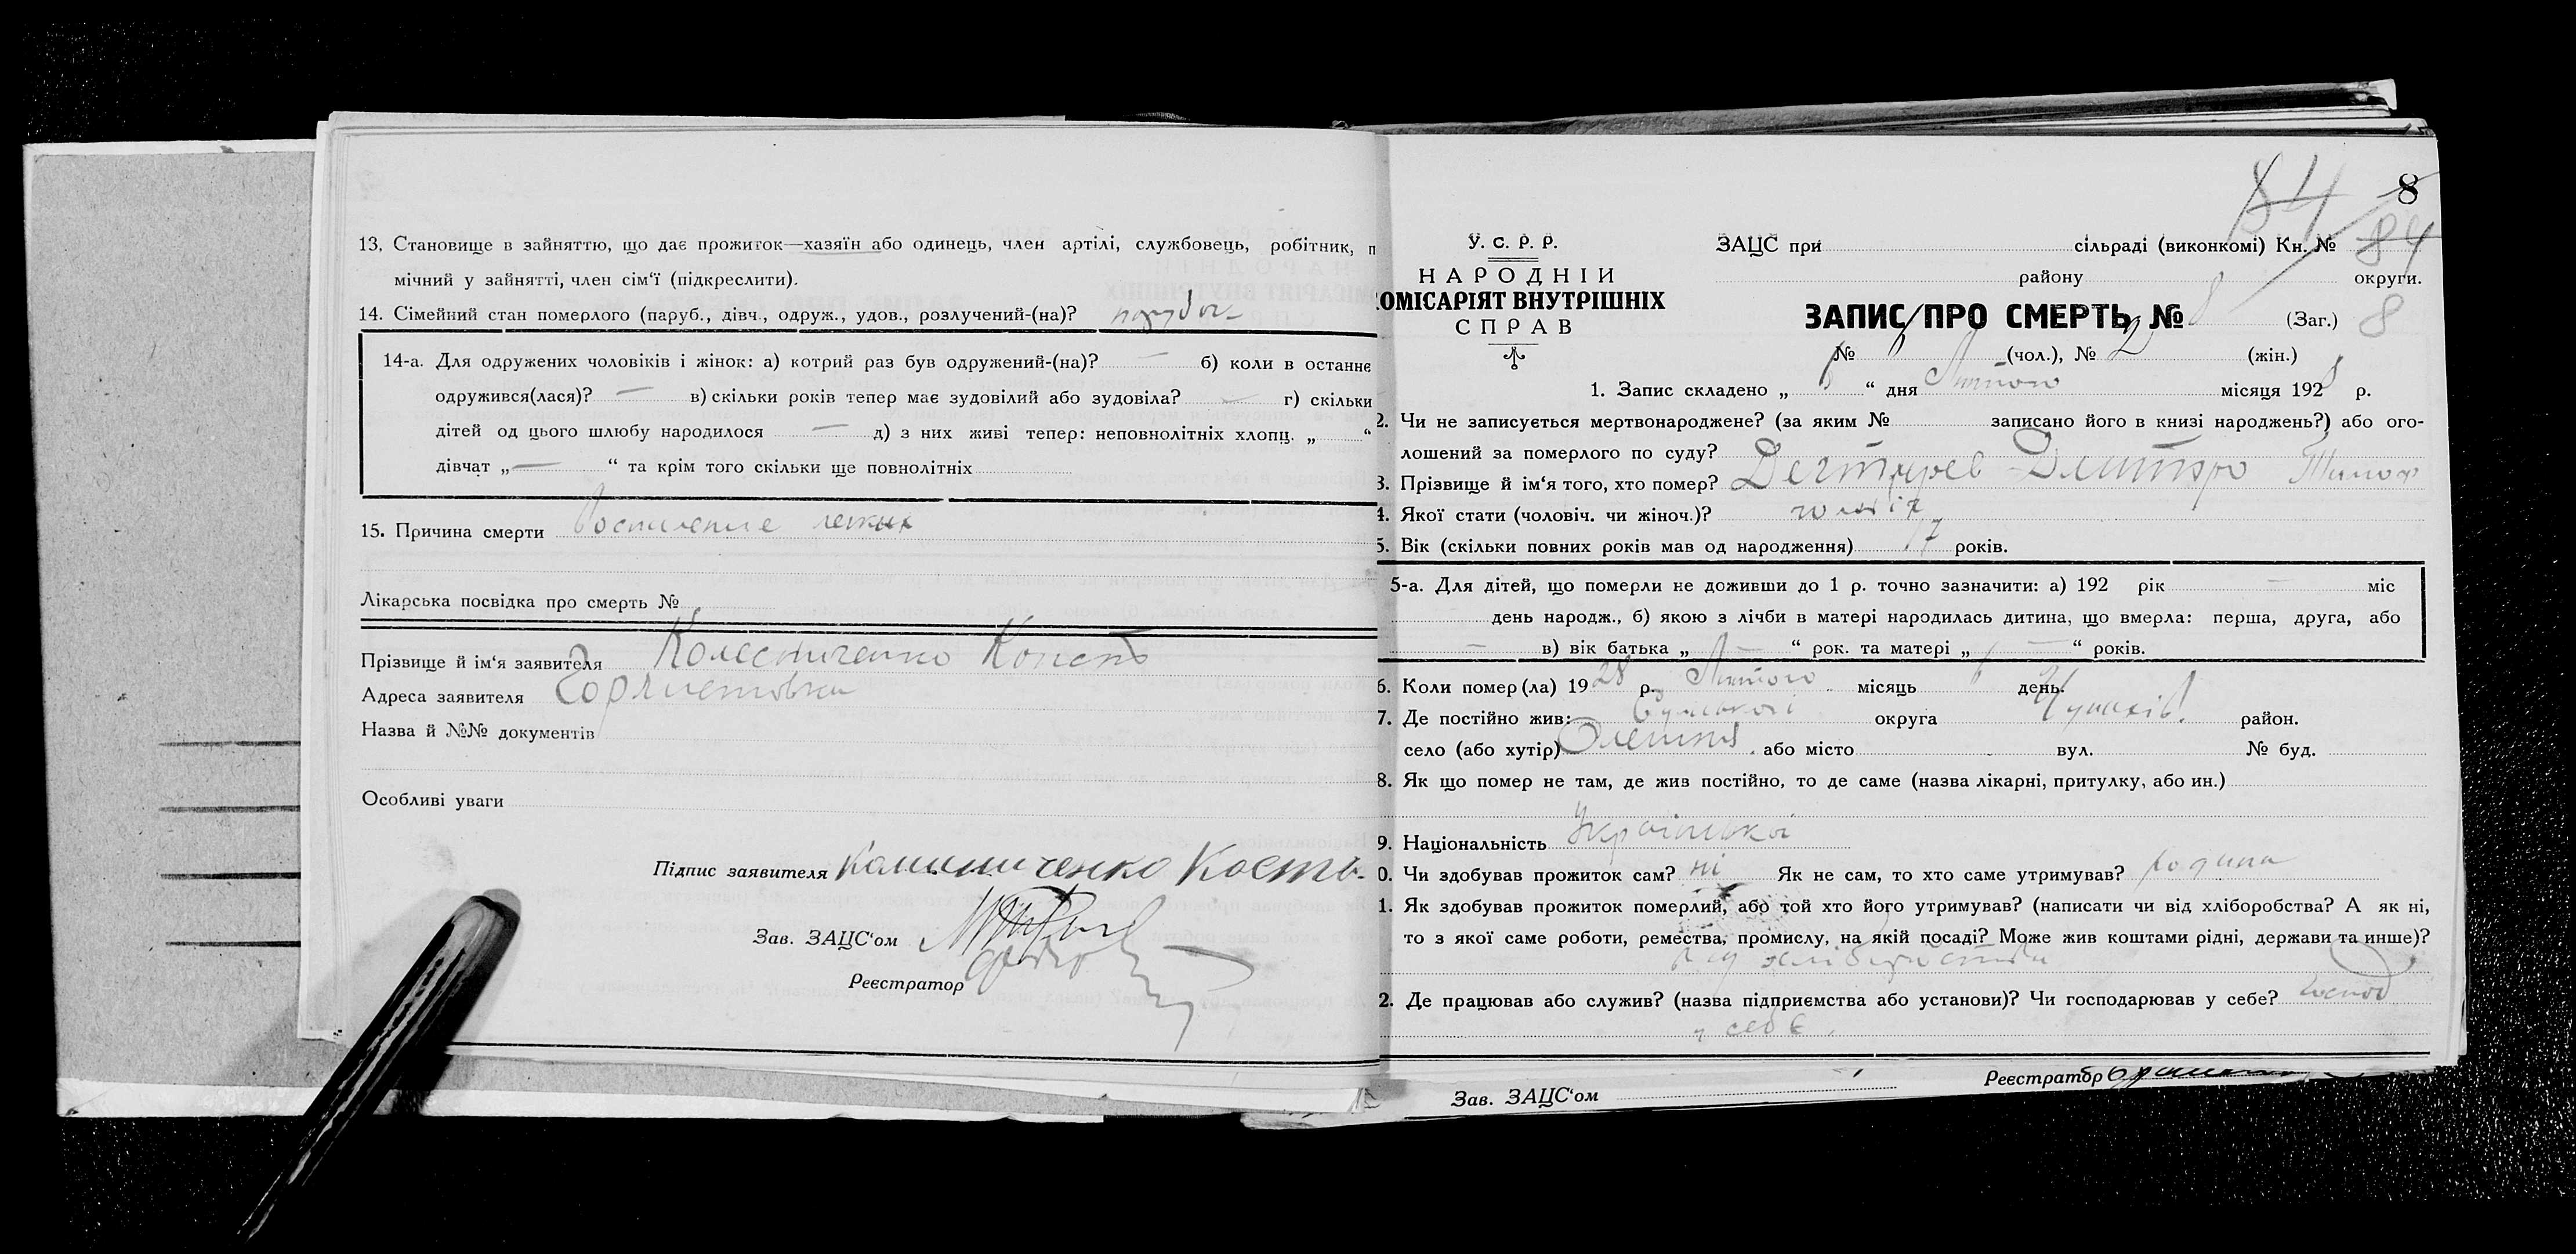 13. Становище в зайняттю, що дає прожиток—хазяїн або одинець, член артілі, службовець, робітник, п
мічний у зайнятті, член сім‘ї (підкреслити).
14. Сімейний стан померлого (паруб., дівч., одруж., удов., розлучений-(на)?
14-а. Для одружених чоловіків і жінок: а) котрий раз був одружений-(на)? — б) коли в останнє
одружився(лася)? — в) скільки років тепер має зудовілий або зудовіла? — г) скільки
дітей од цього шлюбу народилося — д) з них живі тепер: неповнолітніх хлопц. „ “
дівчат „ — “ та крім того скільки ще повнолітніх
15. Причина смерти Воспаление легких
Лікарська посвідка про смерть №
Прізвище й ім‘я заявителя Колесниченко Конст
Адреса заявителя
Назва й №№ документів
Особливі уваги
Підпис заявителя Колисниченко Кость.
Зав. ЗАЦС‘ом
Реєстратор
84 8
У. С. Р. Р.
НАРОДНІЙ
КОМІСАРІЯТ ВНУТРІШНІХ
СПРАВ
ЗАЦС при сільраді (виконкомі) Кн. № 84
району округи.
ЗАПИС ПРО СМЕРТЬ № 8 (Заг.) 8
№ 6 (чол.), № 2 (жін.)
1. Запис складено „ 6 “ дня Лютого місяця 1928 р.
2. Чи не записується мертвонароджене? (за яким № записано його в книзі народжень?) або ого-
лошений за померлого по суду?
3. Прізвище й ім‘я того, хто помер? Дегтярев Дмитро Тимоф
4. Якої стати (чоловіч. чи жіноч.)? чоловік
5. Вік (скільки повних років мав од народження) 17 років.
5-а. Для дітей, що померли не доживши до 1 р. точно зазначити: а) 192 рік — міс
день народж., б) якою з лічби в матері народилась дитина, що вмерла: перша, друга, або
— в) вік батька „ — “ рок. та матері „ — “ років.
6. Коли помер (ла) 1928 р. Лютого місяць 6 день.
7. Де постійно жив: Сумської округа Чупахів. район.
село (або хутір) Олешня. або місто вул. № буд.
8. Як що помер не там, де жив постійно, то де саме (назва лікарні, притулку, або ин.)
9. Національність Української
0. Чи здобував прожиток сам? ні Як не сам, то хто саме утримував? родина
1. Як здобував прожиток померлий, або той хто його утримував? (написати чи від хліборобства? А як ні,
то з якої саме роботи, ремества, промислу, на якій посаді? Може жив коштами рідні, держави та инше)?
від хліборобства
2. Де працював або служив? (назва підприємства або установи)? Чи господарював у себе? Господ
у себе.
Зав. ЗАЦС‘ом
Реєстратор